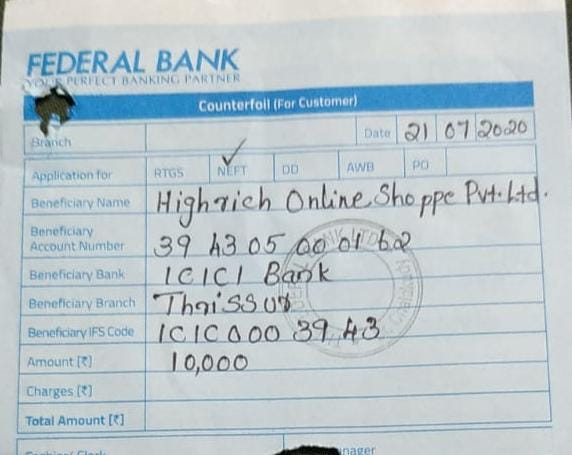 FEDERAL BANK
YOUR PERFECT BANKING PARTNER
Counterfoil (For Customer)
Branch Date 21 07 2020
Application for RTGS NEFT DD AWB PO
Beneficiary Name Highrich Online Shoppe Pvt. Ltd.
Beneficiary
Account Number 39 43 05 00 01 62
Beneficiary Bank ICICI Bank
Beneficiary Branch Thrissur
Beneficiary IFS Code ICIC000 39 43
Amount [₹] 10,000
Charges [₹]
Total Amount [₹]